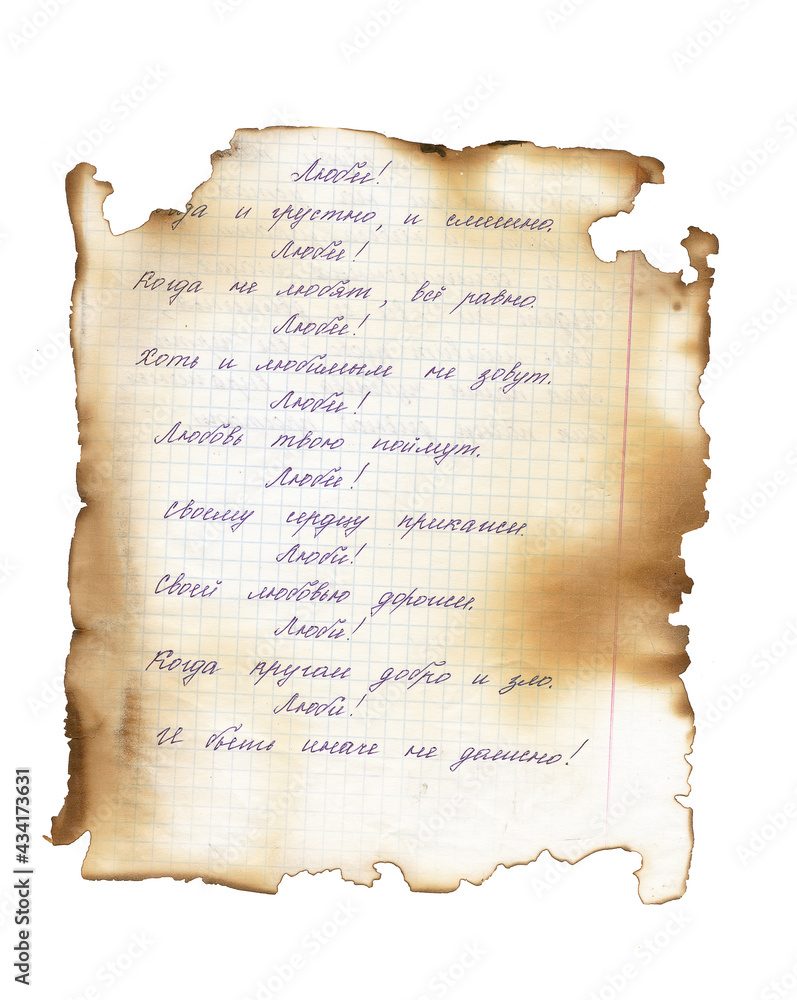 Люби!
и грустно, и смешно.
Люби!
Когда не любят, всё равно.
Люби!
Хоть и любимым не зовут.
Люби!
Любовь твою поймут.
Люби!
Своему сердцу прикажи.
Люби!
Своей любовью дорожи.
Люби!
Когда кругом добро и зло.
Люби!
И быть иначе не должно!
Adobe Stock | #434173631